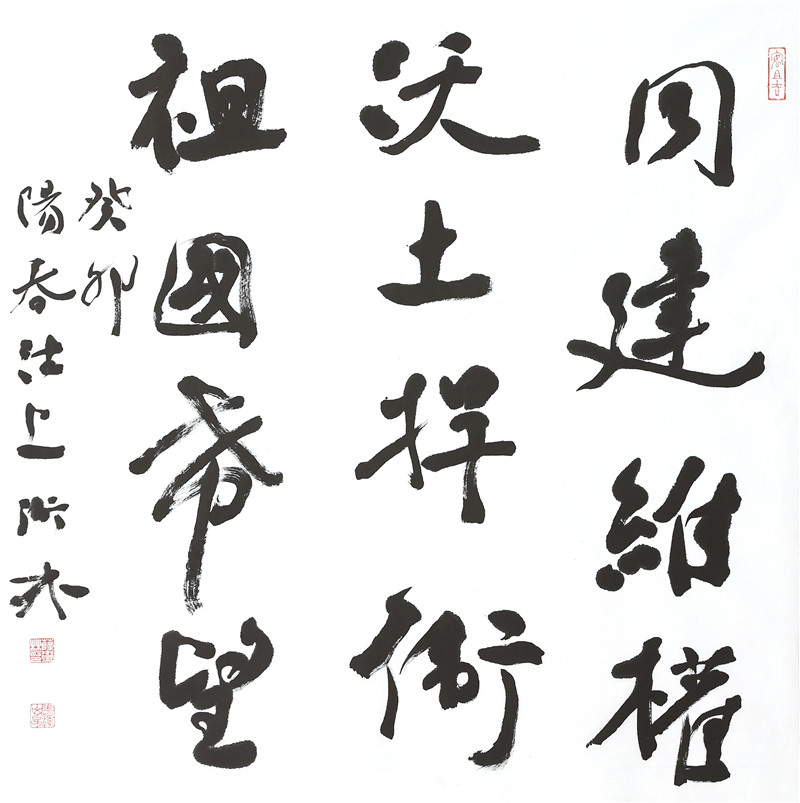 同建維權
沃土捍衛
祖國希望
癸卯
陽春沽上